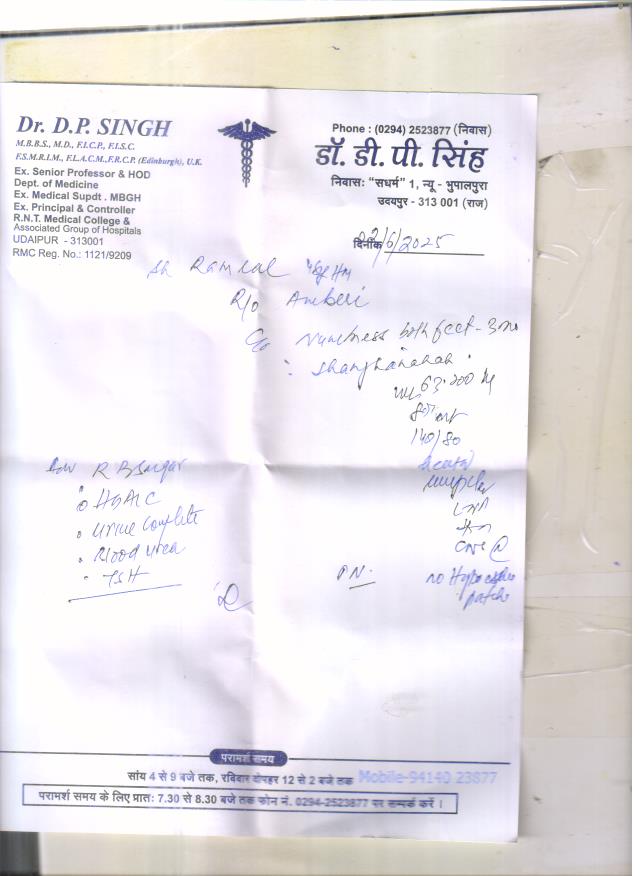 Dr. D.P. SINGH
M.B.B.S., M.D., F.I.C.P., F.I.S.C.
F.S.M.R.I.M., F.I.A.C.M.,F.R.C.P. (Edinburgh), U.K.
Ex. Senior Professor & HOD
Dept. of Medicine
Ex. Medical Supdt . MBGH
Ex. Principal & Controller
R.N.T. Medical College &
Associated Group of Hospitals
UDAIPUR - 313001
RMC Reg. No.: 1121/9209
Phone : (0294) 2523877 (निवास)
डॉ. डी. पी. सिंह
निवास: "सधर्म" 1, न्यू - भुपालपुरा
उदयपुर - 313 001 (राज)
दिनांक 22/6/2025
Sh Ramlal
R/o Amberi
C/o Numbness both feet - 3
63.200 kg
140/80
Adv R B Sugar
HbA1C
Urine Complete
Blood urea
TSH
PN.
no Hypo
patch
परामर्श समय
सांय 4 से 9 बजे तक, रविवार दोपहर 12 से 2 बजे तक Mobile-94140 23877
परामर्श समय के लिए प्रातः 7.30 से 8.30 बजे तक फोन नं. 0294-2523877 पर सम्पर्क करें ।